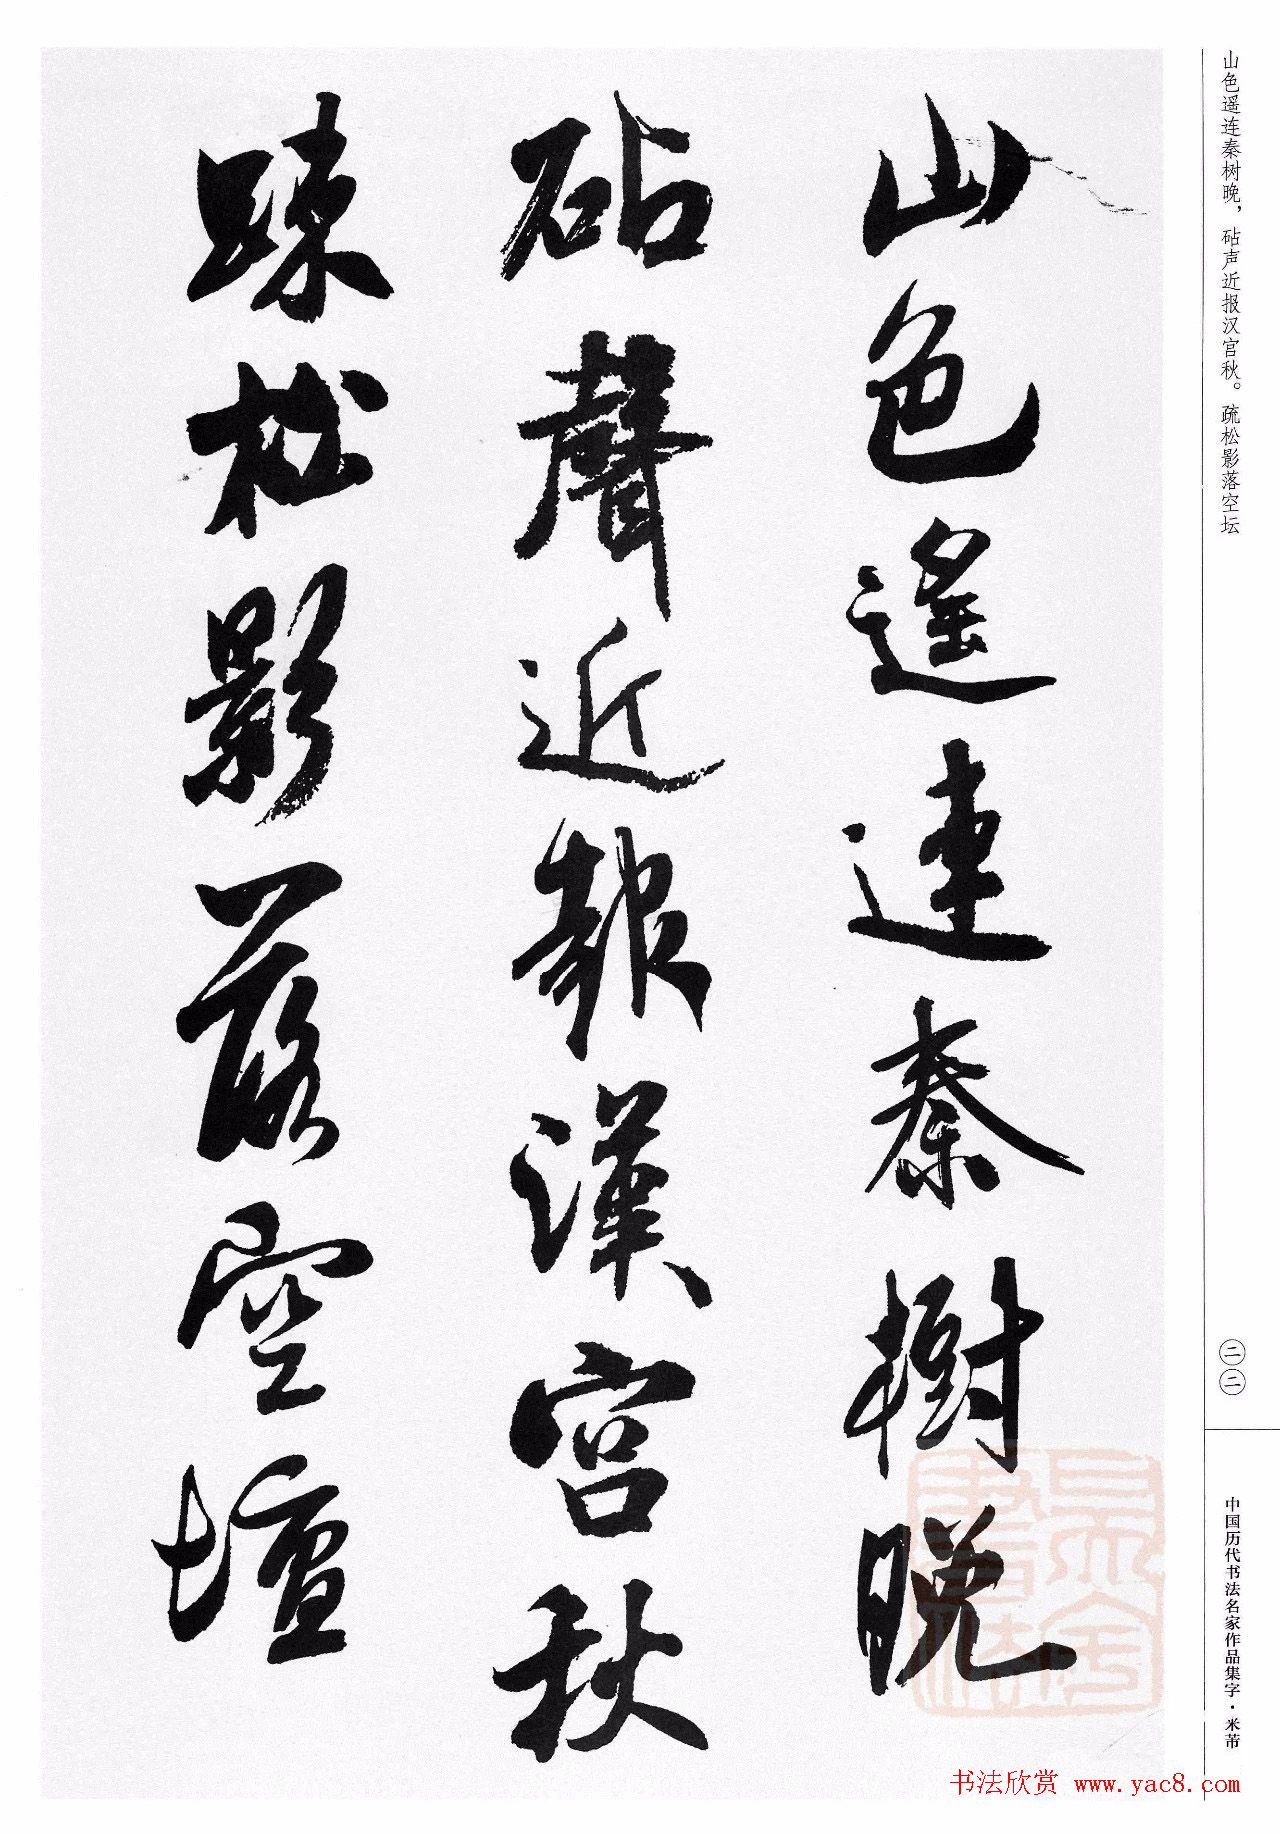 山色遥连秦树晚，砧声近报汉宫秋。疏松影落空坛
山色遙連秦樹晚
砧聲近報漢宮秋
疎松影落空壇
二二
中国历代书法名家作品集字·米芾
书法欣赏 www.yac8.com